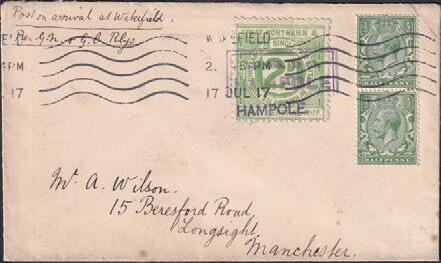 Post on arrival at Wakefield.
Per G.N. & G.C. Rlys
WAKEFIELD
2. 8 PM
17 JUL 17
NORTHERN &
SING
2D
HAMPOLE.
HALFPENNY
HALFPENNY
Mr. A. Wilson.
15 Beresford Road,
Longsight,
Manchester.